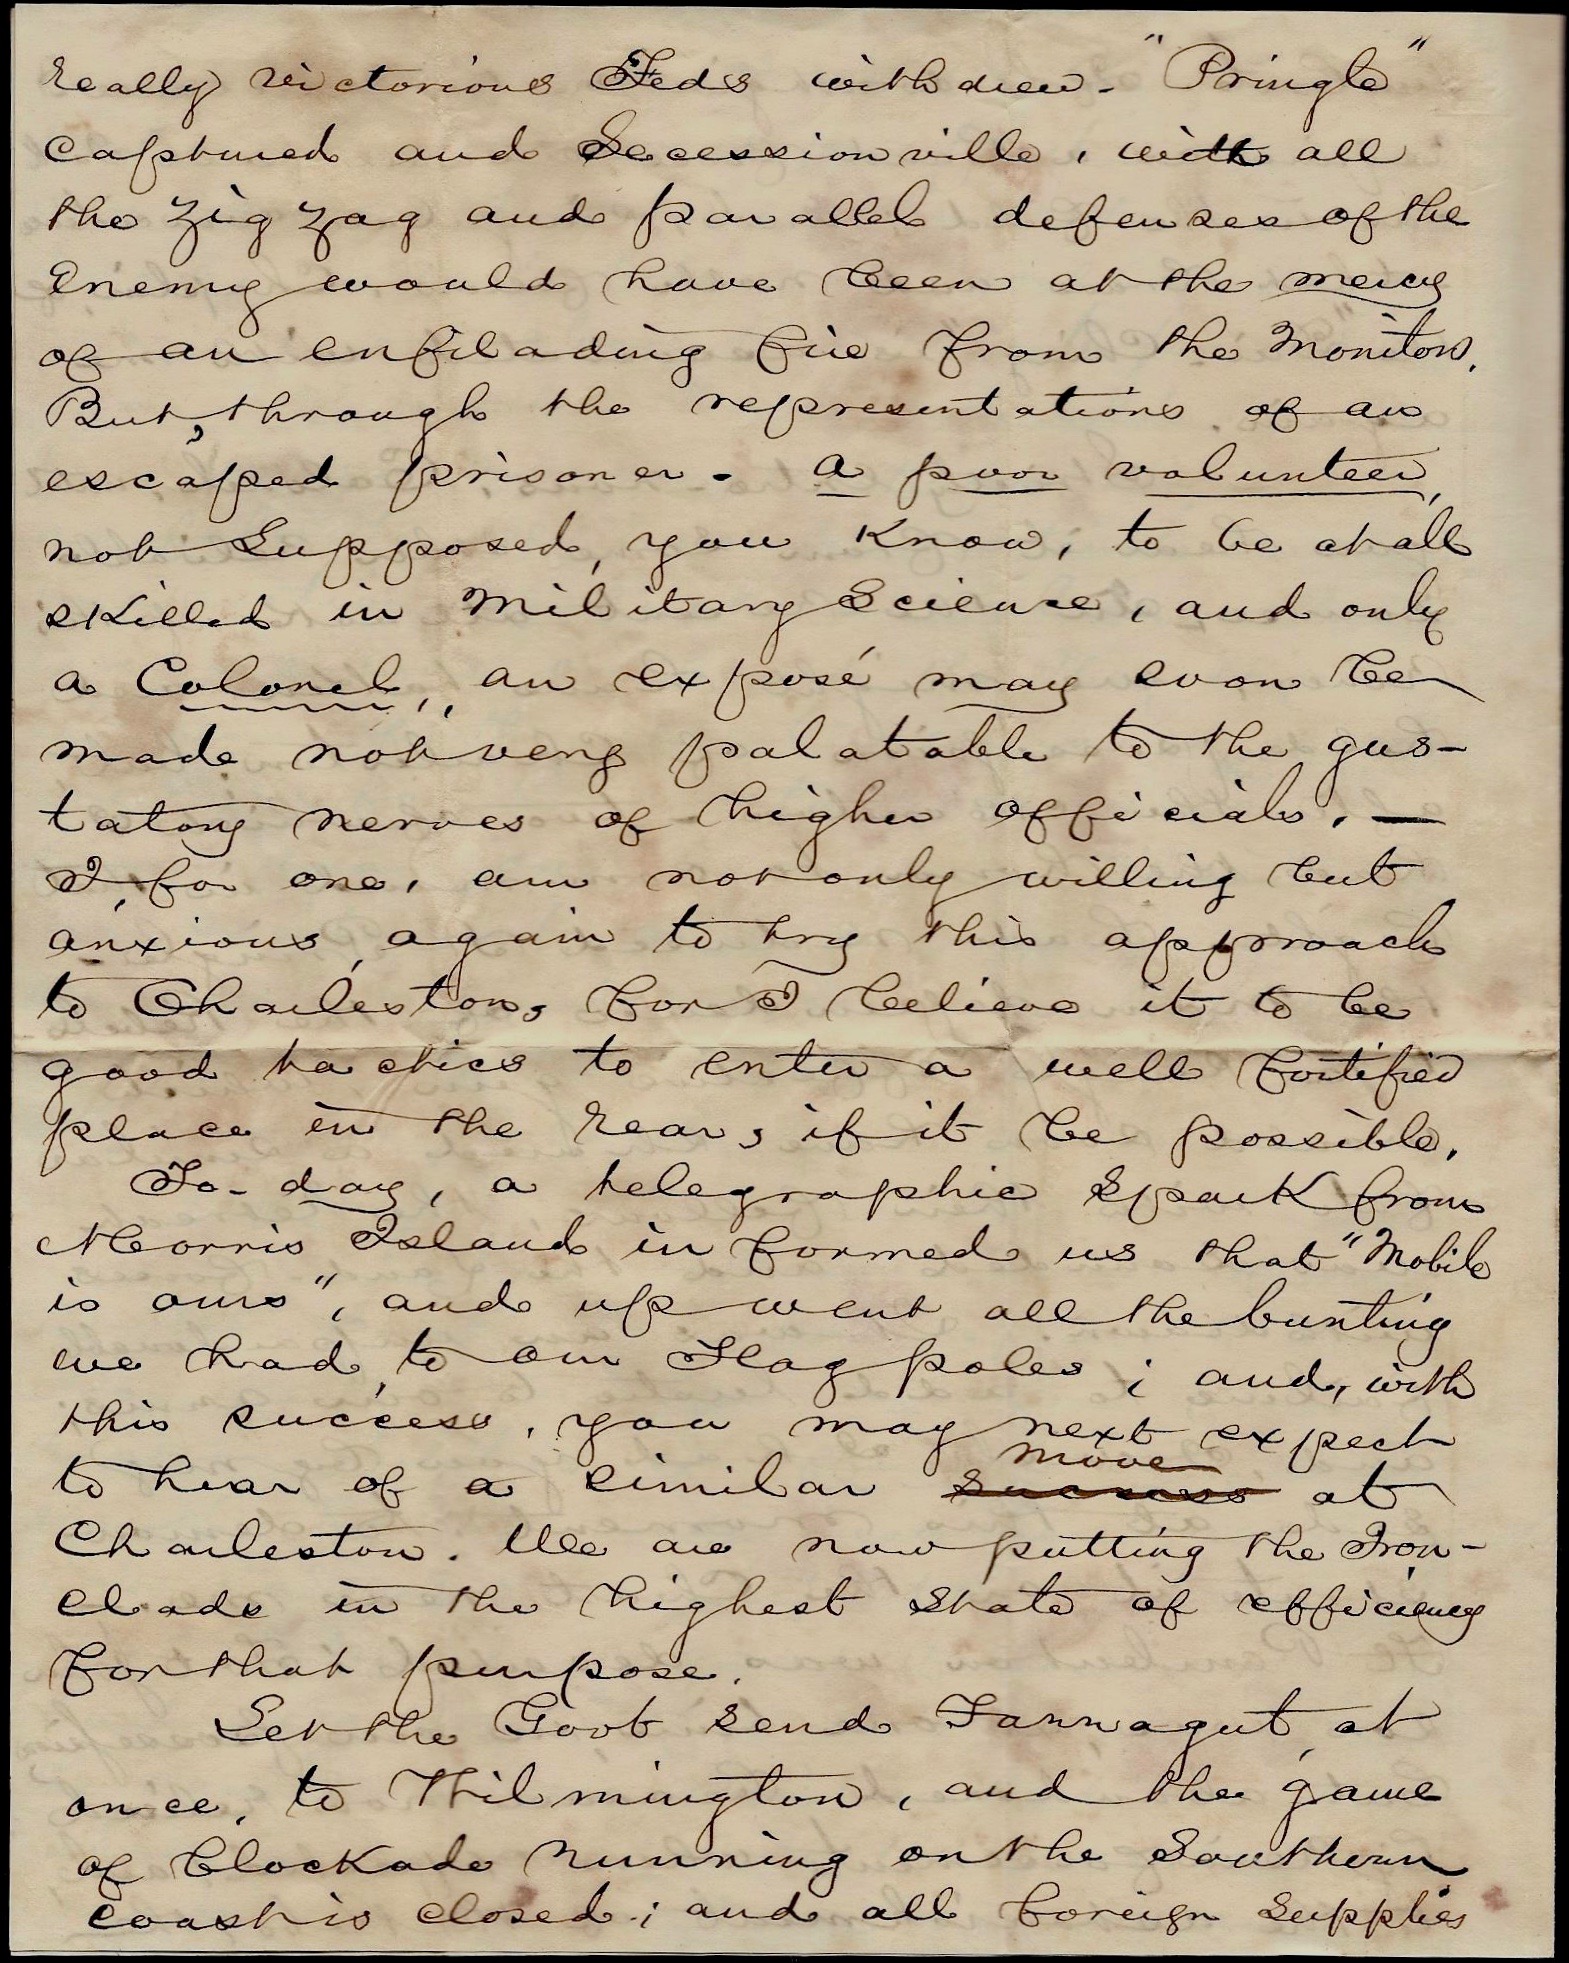 really victorious Feds withdrew. "Pringle"
captured and Secessionville, with all
the zig zag and parallel defenses of the
Enemy would have been at the mercy
of an enfilading fire from the Monitors.
But, through the representations of an
escaped prisoner. a poor volunteer,
not supposed, you know, to be at all
skilled in Military Science, and only
a Colonel,, an exposé may even be
made not very palatable to the gus-
tatory nerves of higher officials. —
I, for one, am not only willing but
anxious, again to try this approach
to Charleston, for I believe it to be
good tactics to enter a well fortified
place in the rear, if it be possible.
To-day, a telegraphic spark from
Morris Island informed us that "Mobile
is ours", and up went all the bunting
we had, to our Flag poles; and, with
this success, you may next expect
to hear of a similar success move at
Charleston. We are now putting the Iron-
clads in the highest state of efficiency
for that purpose.
Let the Govt send Farragut, at
once, to Wilmington, and the game
of blockade running on the Southern
coast is closed; and all foreign supplies